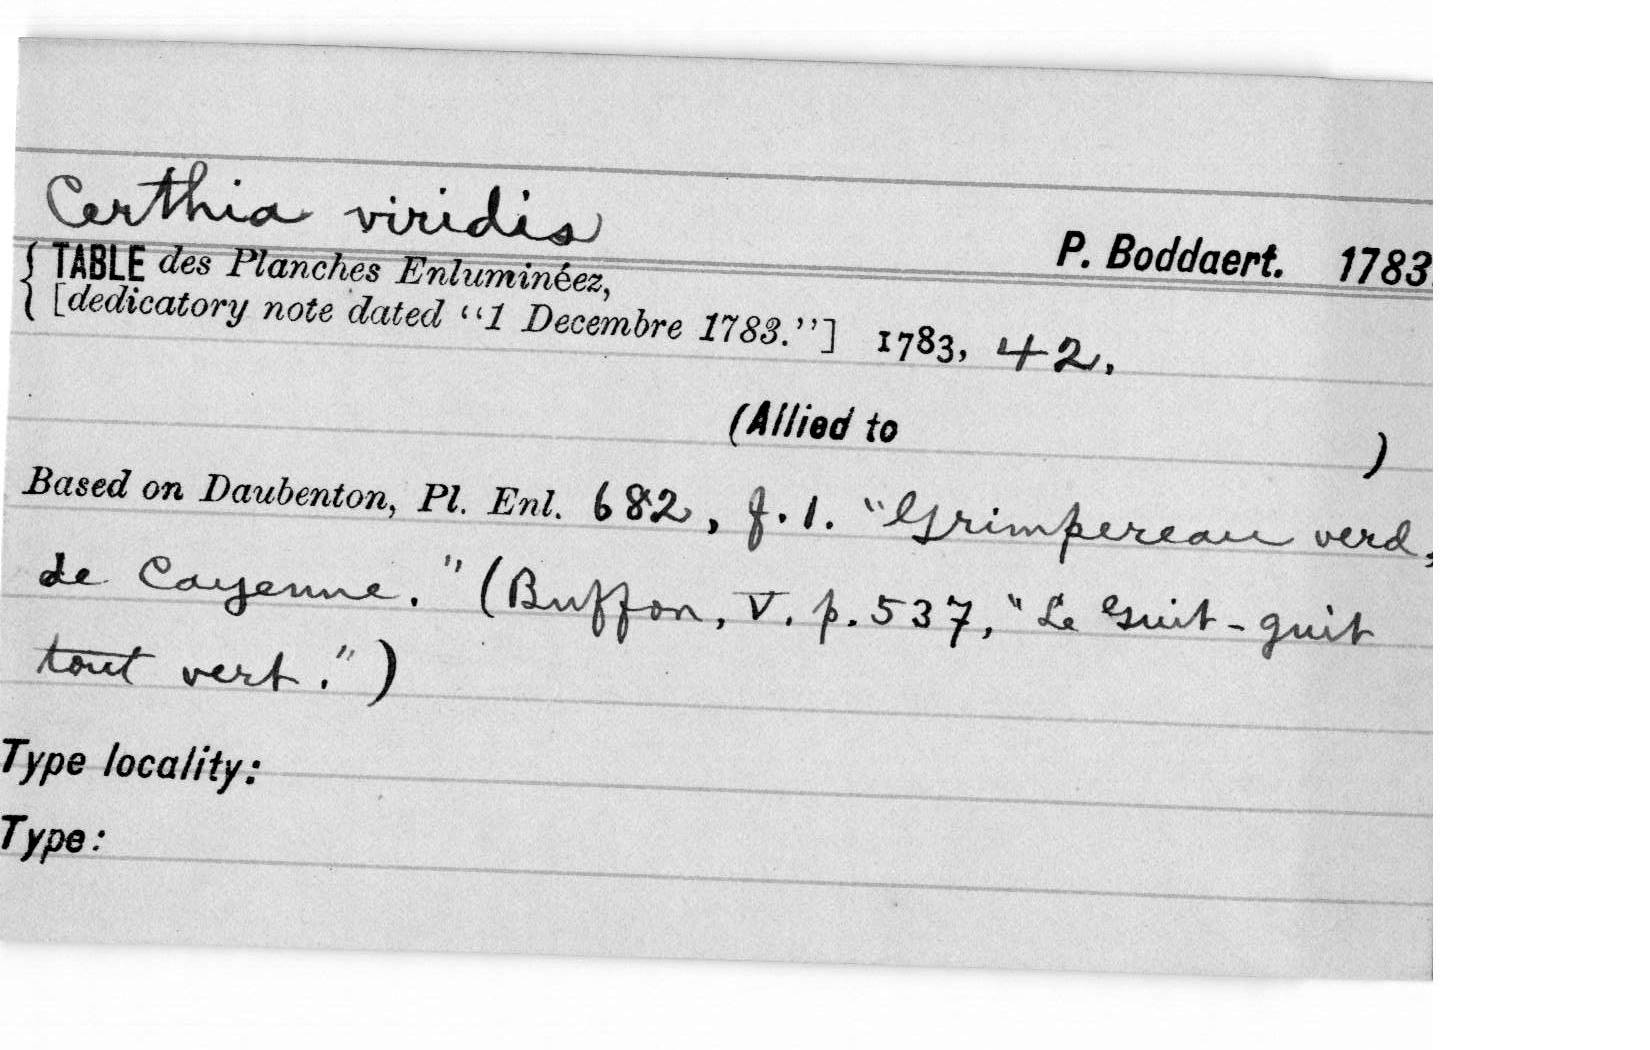 Certhia viridis
P. Boddaert. 1783.
{ TABLE des Planches Enluminéez,
{ [dedicatory note dated "1 Decembre 1783."] 1783, 42.
(Allied to )
Based on Daubenton, Pl. Enl. 682, f. 1. "Grimpereau verd,
de Cayenne." (Buffon, V. p. 537, "Le Guit-guit
tout vert.")
Type locality:
Type: